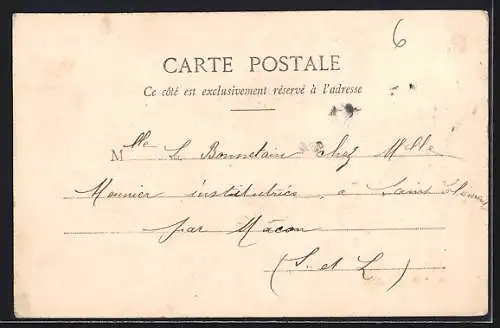 6
CARTE POSTALE
Ce côté est exclusivement réservé à l'adresse
Mlle L. Bonnetain chez Melle
Monnier institutrice à Saint
par Mâcon
(S. et L.)